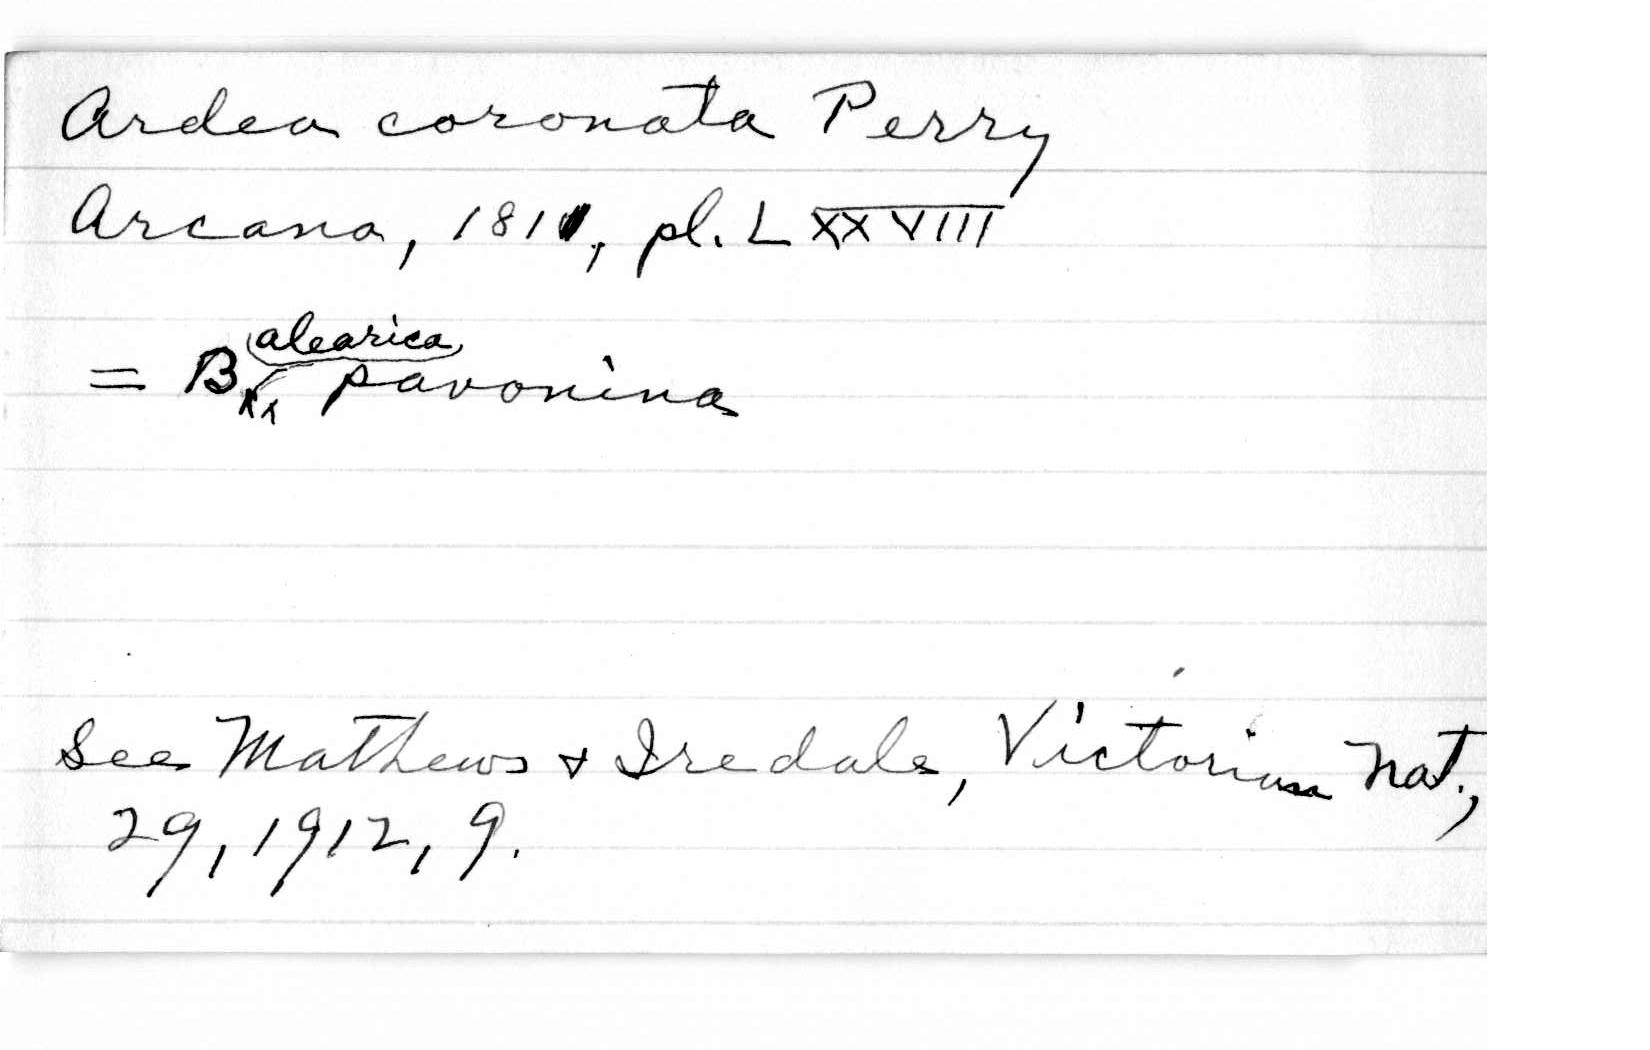 Ardea coronata Perry
Arcana, 1811, pl. LXXVIII
= Balearica pavonina
See Mathews & Iredale, Victorian Nat.,
29, 1912, 9.